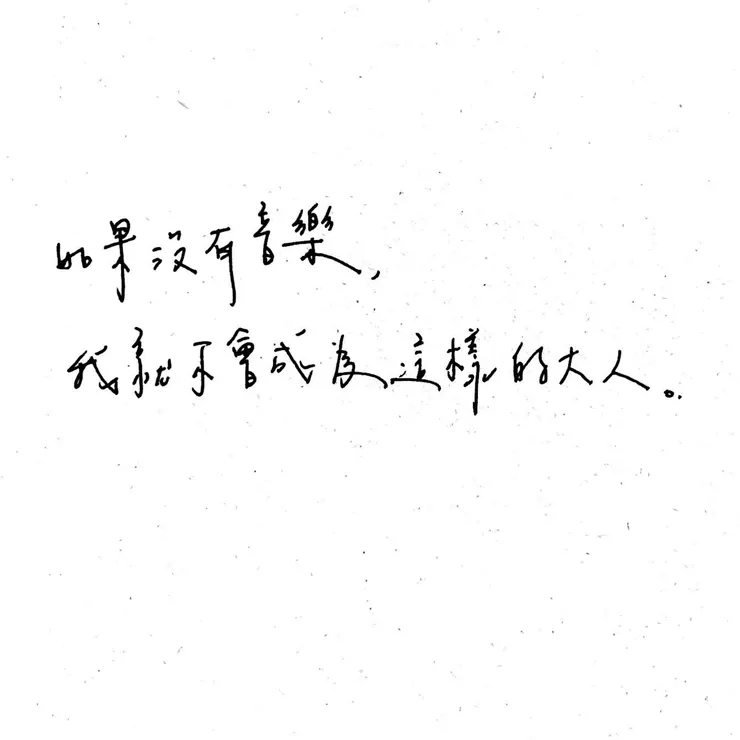 如果沒有音樂，
我就不會成為這樣的大人。